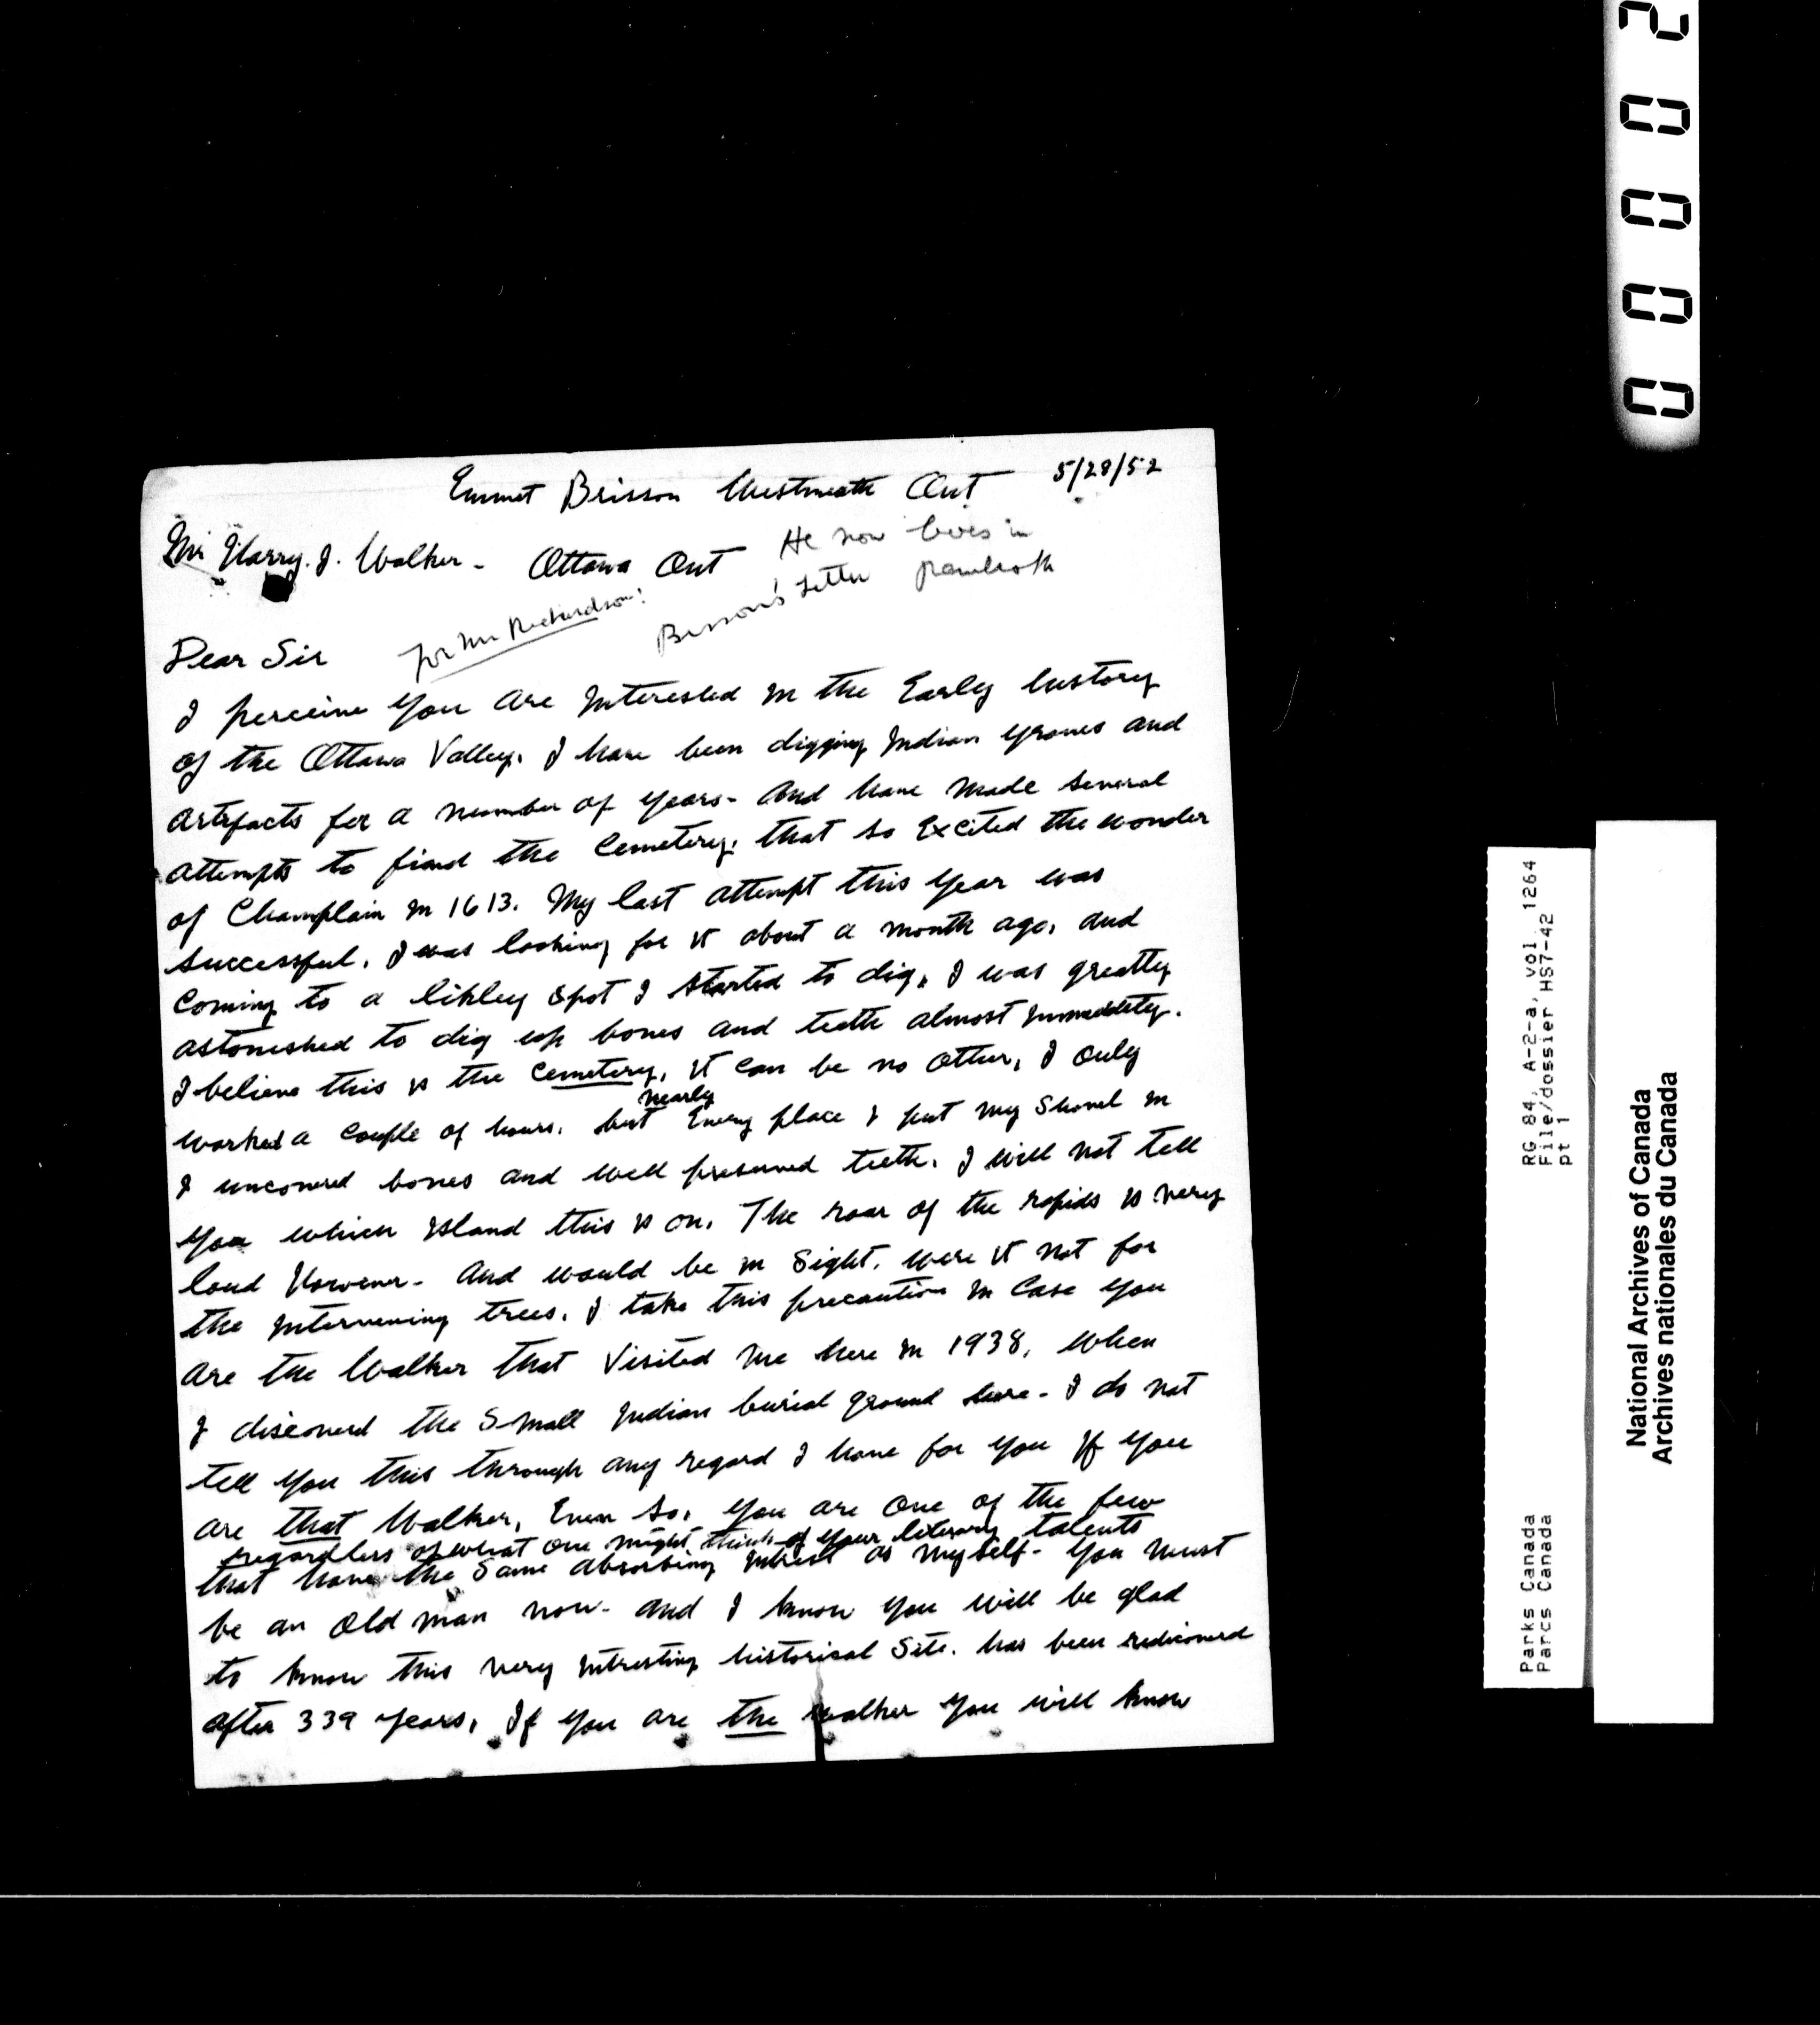 Emmet Brisson Westmeath Ont 5/28/52
Mr Harry. J. Walker - Ottawa Ont
He now lives in
Pembroke
For Mr Richardson:
Brisson's Letter
Dear Sir
I perceive you are interested in the Early history
of the Ottawa Valley. I have been digging Indian graves and
artifacts for a number of years - and have made several
attempts to find the Cemetery, that so Excited the wonder
of Champlain in 1613. My last attempt this year was
successful. I was looking for it about a month ago, and
coming to a likley spot I started to dig, I was greatly
astonished to dig up bones and teeth almost immeditely.
I believe this is the cemetery, it can be no other, I only
worked a couple of hours, but nearly Every place I put my shovel in
I uncovered bones and well preserved teeth. I will not tell
you which island this is on. The roar of the rapids is very
loud However - and would be in sight, were it not for
the intervening trees. I take this precaution in case you
are the Walker that visited me here in 1938, when
I discoverd the small Indian burial ground here - I do not
tell you this through any regard I have for you if you
are that Walker, Even so, you are one of the few
regardless of what one might think of your literary talents
that have the same absorbing intrest as myself - you must
be an old man now - and I know you will be glad
to know this very intresting historical site, has been rediscoverd
after 339 years, If you are the Walker you will know
00002
RG 84, A-2-a, vol. 1264
File/dossier HS7-42
pt 1
Parks Canada
Parcs Canada
National Archives of Canada
Archives nationales du Canada